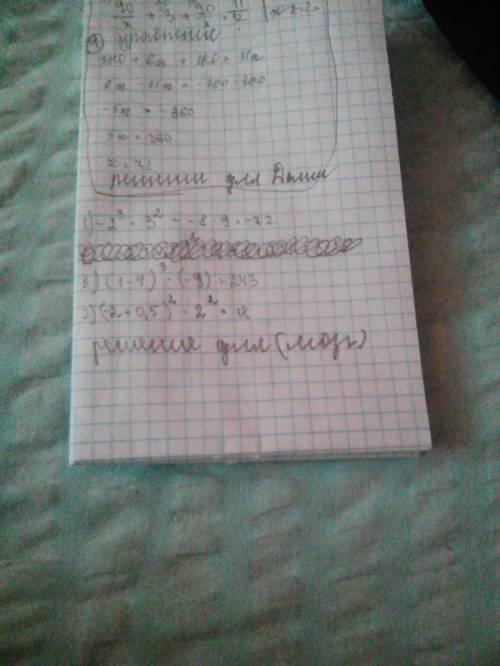 90/x + 3 + 90/x = 11/2
1) уравнение
180 + 6x + 180 = 11x
6x - 11x = -180-180
-5x = -360
5x = 360
x = 72
решении для Даши
1) -2³ · 3² = -8 · 9 = -72
3) (1-4)³ · (-9) = 243
2) (-2+0,5)² · 2² = 18
решение для (мозг)